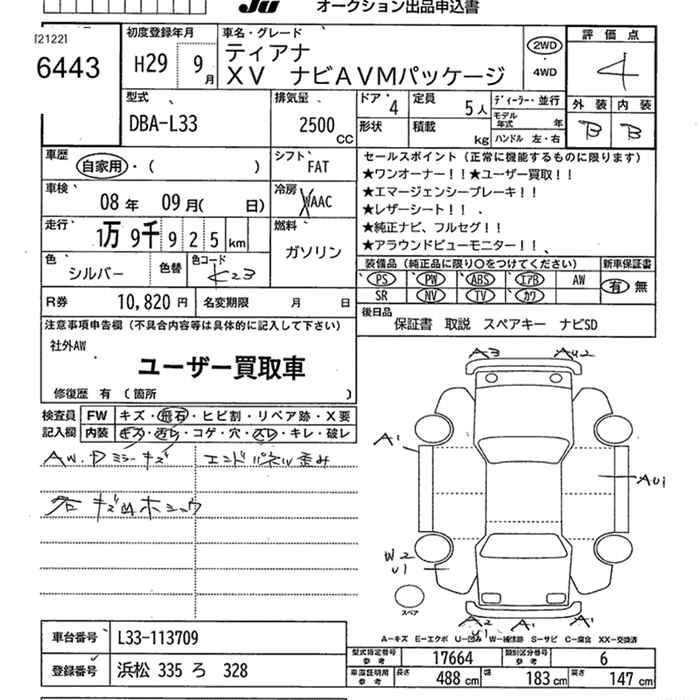 Ju オークション出品申込書
[2122]
6443
初度登録年月
H29 9月
車名・グレード
ティアナ
XV ナビAVMパッケージ
2WD
4WD
評価点
4
外装 内装
B B
型式
DBA-L33
排気量
2500 CC
ドア 4
定員 5人
形状
積載 kg
ディーラー・並行
モデル年式 年
ハンドル 左・右
車歴
自家用・( )
シフト FAT
車検
08年 09月( 日)
冷房 AAC
走行
1万9千925km
燃料
ガソリン
色
シルバー
色替
色コード
K23
R券 10,820円
名変期限 月 日
セールスポイント(正常に機能するものに限ります)
★ワンオーナー!!★ユーザー買取!!
★エマージェンシーブレーキ!!
★レザーシート!!
★純正ナビ、フルセグ!!
★アラウンドビューモニター!!
装備品(純正品に限り〇をつけてください)
新車保証書
PS PW ABS エアB AW
SR NV TV カワ
有 無
後日品
保証書 取説 スペアキー ナビSD
注意事項申告欄(不具合内容等は具体的に記入して下さい)
社外AW
ユーザー買取車
修復歴 有 (箇所 )
検査員記入欄
FW キズ・飛石・ヒビ割・リペア跡・X要
内装 キズ・汚レ・コゲ・穴・スレ・キレ・破レ
AW.P ミラーキズ エンドパネル歪み
A3 AU2
A1
AU1
W2
U1
スペア
A2
U1
A1
A1
A-キズ E-エクボ U-凹み W-補修跡 S-サビ C-腐食 XX-交換済
車台番号 L33-113709
登録番号 浜松 335 ろ 328
型式指定番号参考 17664
類別区分番号参考 6
車庫証明用参考 長さ 488cm 幅 183cm 高さ 147cm